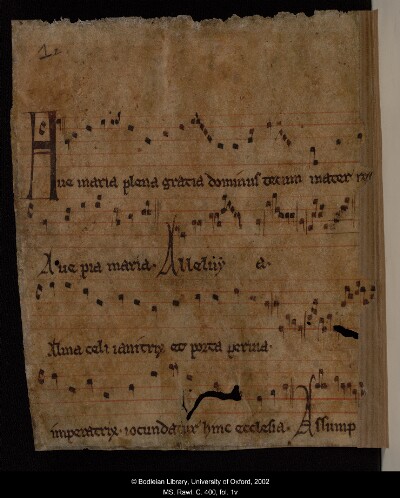 1.
Aue maria plena gratia dominus tecum mater
Aue pia maria. Alleluy a.
Alma celi ianitrix et porta
imperatrix. iocundatur hinc ecclesia. Assump
© Bodleian Library, University of Oxford, 2002
MS. Rawl. C. 400, fol. 1v